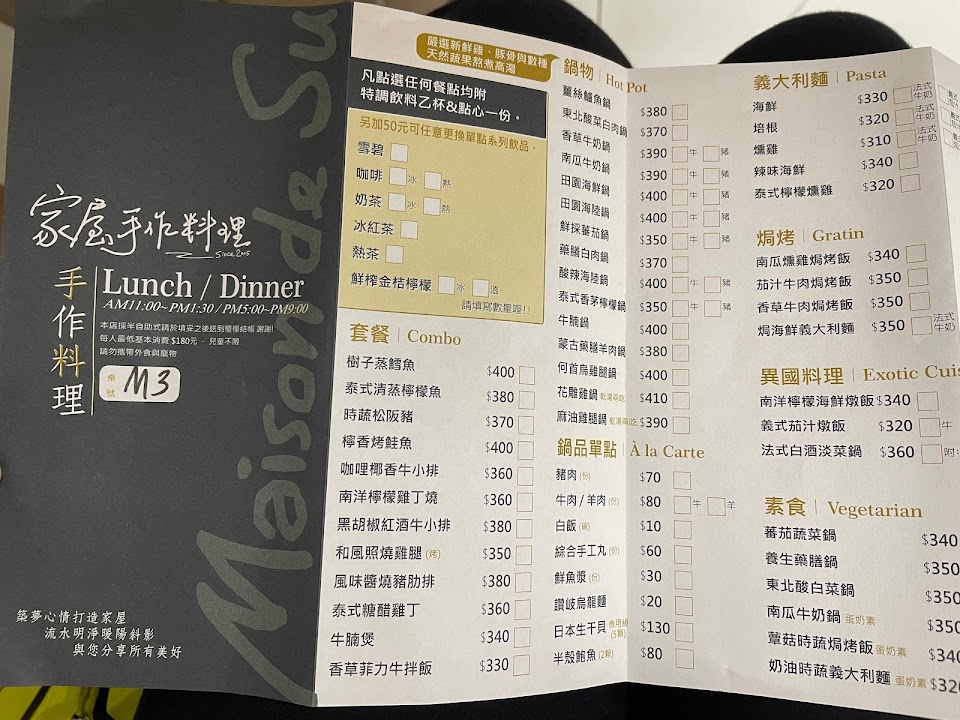 Maison de Su
家屋手作料理
SINCE 2015
手作料理
Lunch / Dinner
AM11:00~PM1:30 / PM5:00~PM9:00
本店採半自助式請於填妥之後送到櫃檯結帳 謝謝!
每人最低基本消費 $180元，兒童不限
請勿攜帶外食與寵物
桌號 M3
築夢心情打造家屋
流水明淨暖陽斜影
與您分享所有美好
嚴選新鮮雞、豚骨與數種
天然蔬果熬煮高湯
凡點選任何餐點均附
特調飲料乙杯&點心一份。
另加50元可任意更換單點系列飲品。
雪碧
咖啡 冰 熱
奶茶 冰 熱
冰紅茶
熱茶
鮮榨金桔檸檬 冰 溫
請填寫數量喔!!
套餐 | Combo
樹子蒸鱈魚 $400
泰式清蒸檸檬魚 $380
時蔬松阪豬 $370
檸香烤鮭魚 $400
咖哩椰香牛小排 $360
南洋檸檬雞丁燒 $360
黑胡椒紅酒牛小排 $380
和風照燒雞腿 (烤) $350
風味醬燒豬肋排 $380
泰式糖醋雞丁 $360
牛腩煲 $340
香草菲力牛拌飯 $330
鍋物 | Hot Pot
薑絲鱸魚鍋 $380
東北酸菜白肉鍋 $370
香草牛奶鍋 $390 牛 豬
南瓜牛奶鍋 $390 牛 豬
田園海鮮鍋 $400
田園海陸鍋 $400 牛 豬
鮮採蕃茄鍋 $350 牛 豬
藥膳白肉鍋 $370
酸辣海陸鍋 $400 牛 豬
泰式香茅檸檬鍋 $350 牛 豬
牛腩鍋 $400
蒙古藥膳羊肉鍋 $380
何首烏雞腿鍋 $400
花雕雞鍋 乾湯兩吃 $410
麻油雞腿鍋 乾湯兩吃 $390
鍋品單點 | À la Carte
豬肉 (份) $70
牛肉 / 羊肉 (份) $80 牛 羊
白飯 (碗) $10
綜合手工丸 (份) $60
鮮魚漿 (份) $30
讚岐烏龍麵 $20
日本生干貝 食用級 (5顆) $130
半殼鮑魚 (2顆) $80
義大利麵 | Pasta
海鮮 $330 法式牛奶
培根 $320 法式牛奶
燻雞 $310 法式牛奶
辣味海鮮 $340
泰式檸檬燻雞 $320
焗烤 | Gratin
南瓜燻雞焗烤飯 $340
茄汁牛肉焗烤飯 $350
香草牛肉焗烤飯 $350
焗海鮮義大利麵 $350 法式牛奶
異國料理 | Exotic Cuis
南洋檸檬海鮮燉飯 $340
義式茄汁燉飯 $320 牛
法式白酒淡菜鍋 $360 附:
素食 | Vegetarian
蕃茄蔬菜鍋 $340
養生藥膳鍋 $350
東北酸白菜鍋 $350
南瓜牛奶鍋 蛋奶素 $350
蕈菇時蔬焗烤飯 蛋奶素 $340
奶油時蔬義大利麵 蛋奶素 $320